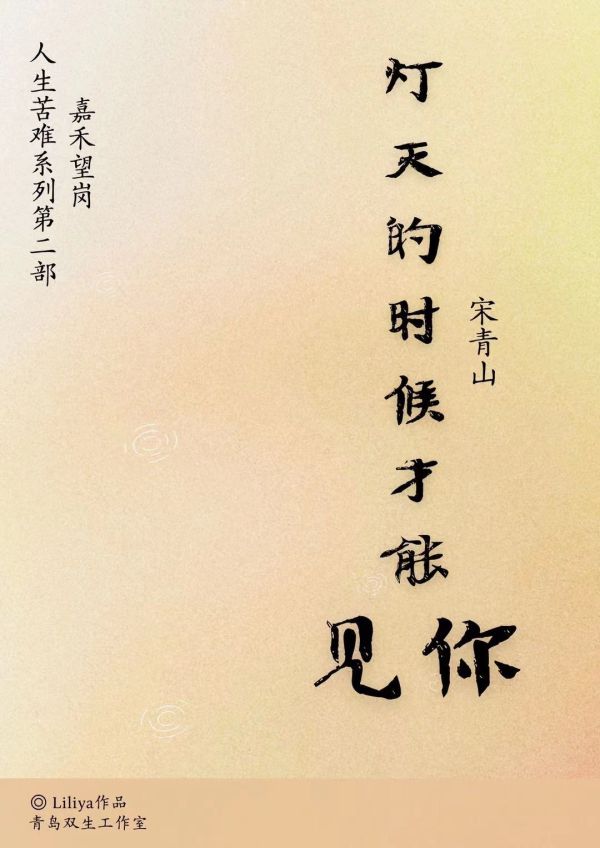 灯灭的时候才能
见你
宋青山
嘉禾望岗
人生苦难系列第二部
◎ Liliya作品
青岛双生工作室